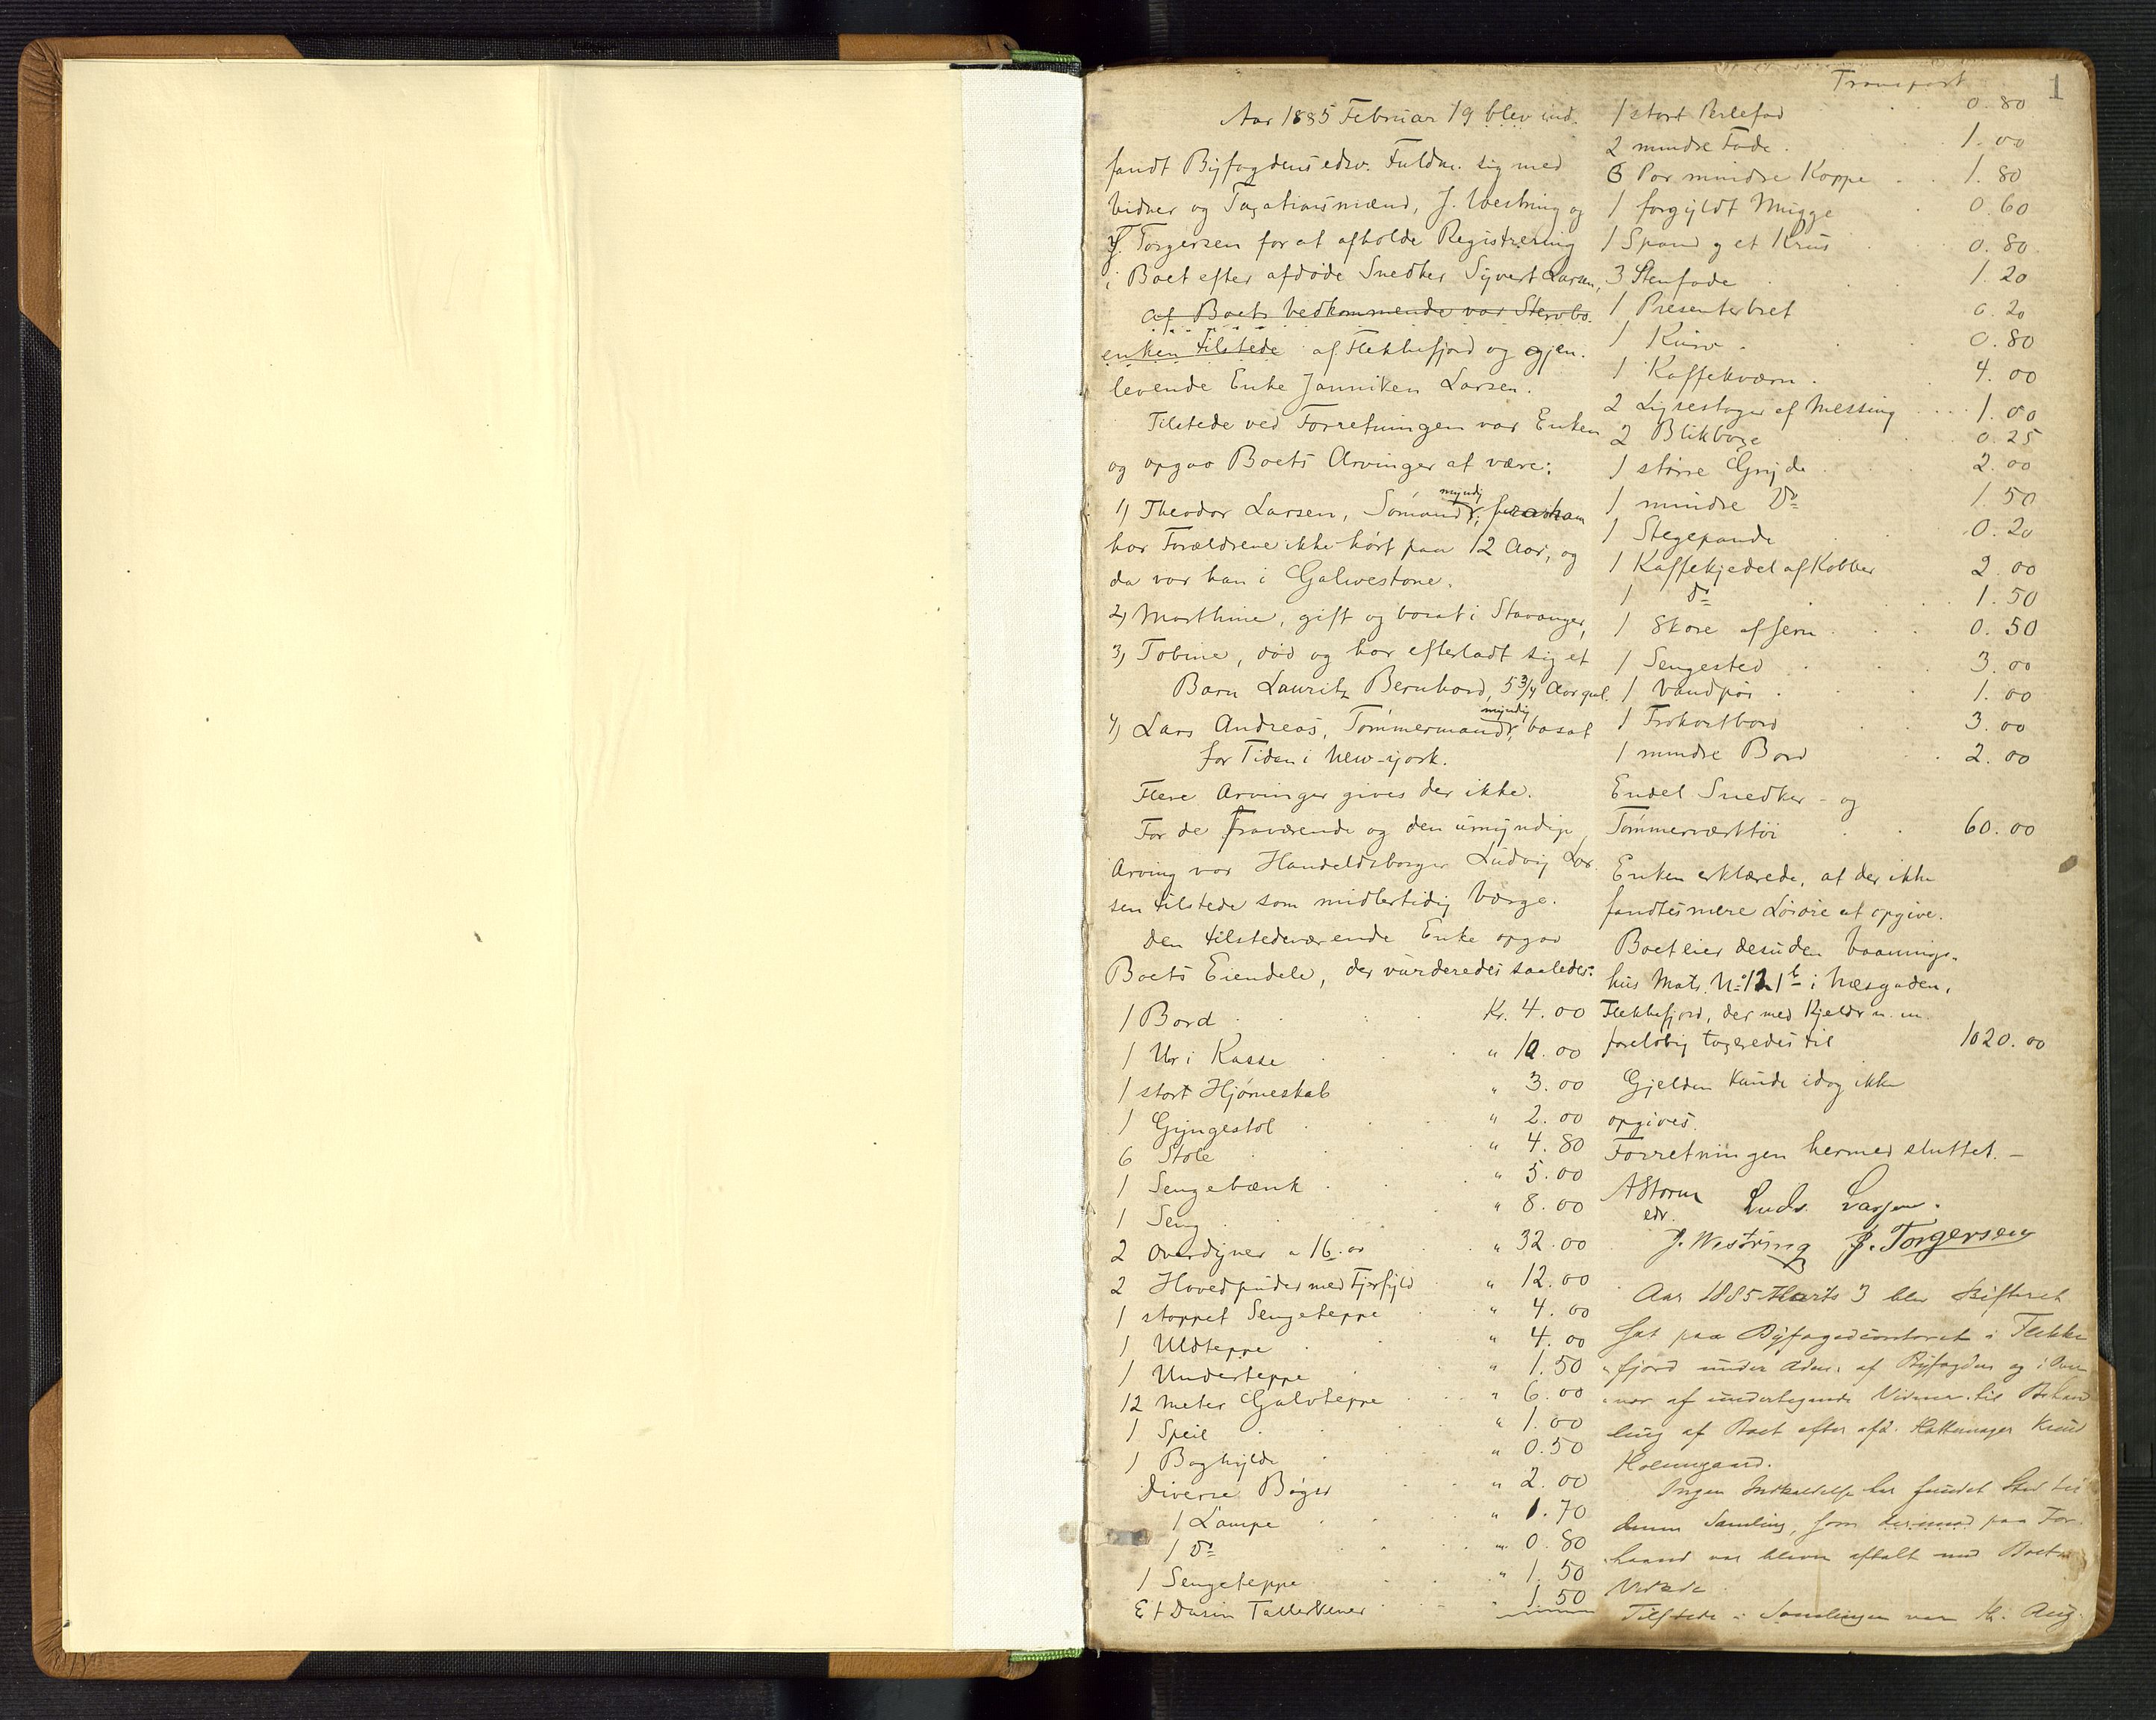 1
Aar 1885 Februar 19 blev ind-
fandt Byfogdens edsv. Fuldm. sig med
Vidner og Taxationsmænd, J. Westring og
J. Torgersen for at afholde Registrering
i Boet efter afdøde Snedker Syvert Larsen,
af Boets Vedkommende var Stervbo-
enken tilstede af Flekkefjord og gjen-
levende Enke Janniken Larsen.
Tilstede ved Forretningen var Enken
og opgav Boets Arvinger at være:
1) Theodor Larsen, Sømand, myndig,
har Forældrene ikke hørt paa 12 Aar, og
da var han i Galvestone.
2) Marthine, gift og bosat i Stavanger,
3) Tobine, død og har efterladt sig et
Barn Lauritz Bernhard, 5 3/4 Aar gul.
4) Lars Andreas, Tømmermand, myndig, bosat
for Tiden i New-york.
Flere Arvinger gives der ikke.
For de fraværende og den umyndige
Arving var Handelsborger Ludvig Lar-
sen tilstede som midlertidig Værge.
Den tilstedeværende Enke opgav
Boets Eiendele, der vurderedes saaledes:
1 Bord Kr. 4.00
1 Uhr i Kasse " 10.00
1 stort Hjørneskab " 3.00
1 Gyngestol " 2.00
6 Stole " 4.80
1 Sengebænk " 5.00
1 Seng " 8.00
2 Overdyner a 16.00 " 32.00
2 Hovedpuder med Fjerfyld " 12.00
1 stoppet Sengeteppe " 4.00
1 Uldteppe " 4.00
1 Underteppe " 1.50
12 Meter Gulvteppe " 6.00
1 Speil " 1.00
1 Boghylde " 0.50
Diverse Bøger " 2.00
1 Lampe " 1.70
1 Do " 0.80
1 Sengeteppe " 1.50
Et Dusin Tallerkener " 1.50
Transport
1 stort Perlefad 0.80
2 mindre Fade 1.00
6 Par mindre Koppe 1.80
1 forgyldt Mugge 0.60
1 Spand og et Krus 0.80
3 Stenfade 1.20
1 Presenterbret 0.20
1 Kurv 0.80
1 Kaffekværn 4.00
2 Lysestager af Messing 1.00
2 Blikboxe 0.25
1 større Gryde 2.00
1 mindre Do 1.50
1 Stegepande 0.20
1 Kaffekjedel af Kobber 2.00
1 Do 1.50
1 Skore af Jern 0.50
1 Sengested 3.00
1 Vandpøs 1.00
1 Frokostbord 3.00
1 mindre Bord 2.00
Endel Snedker- og
Tømmerværktøi 60.00
Enken erklærede, at der ikke
fandtes mere Løsøre at opgive.
Boet eier desuden Vaanings-
hus Mats. No 121 b i Næsgaden,
Flekkefjord, der med Kjelder m. m.
foreløbig taxeredes til 1020.00
Gjelden kunde idag ikke
opgives.
Forretningen hermed sluttet. —
AStorm Ludv. Larsen.
edv.
J. Westring J. Torgersen
Aar 1885 Marts 3 blev Skifteret
sat paa Byfogedcontoret i Flekke
fjord under Adm. af Byfogden og i Over
vær af undertegnede Vidner til Behand
ling af Boet efter afd. Hattemager Knud
Holmegaard.
Ingen Indkaldelse har fundet Sted til
denne Samling, som derimod paa For-
haand var bleven aftalt med Boets
Tilstede i Samlingen var H. Aug.